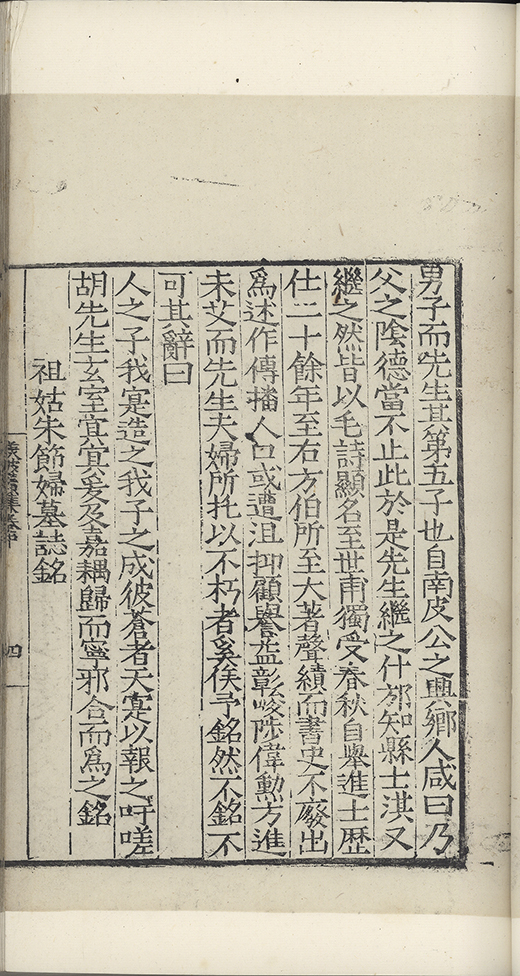 男子而先生其第五子也自南皮公之興鄉人咸曰乃
父之陰德當不止此於是先生繼之什邡知縣士淇又
繼之然皆以毛詩顯名至世甫獨受春秋自舉進士歷
仕二十餘年至右方伯所至大著聲績而書史不廢出
為述作傳播人口或遭沮抑顧譽益彰峻陟偉勳方進
未艾而先生夫婦所托以不朽者奚俟予銘然不銘不
可其辭曰
人之子我寔造之我子之成彼蒼者天寔以報之吁嗟
胡先生玄室宜宜爰及嘉耦歸而寧邪含而為之銘
祖姑朱節婦墓誌銘
四